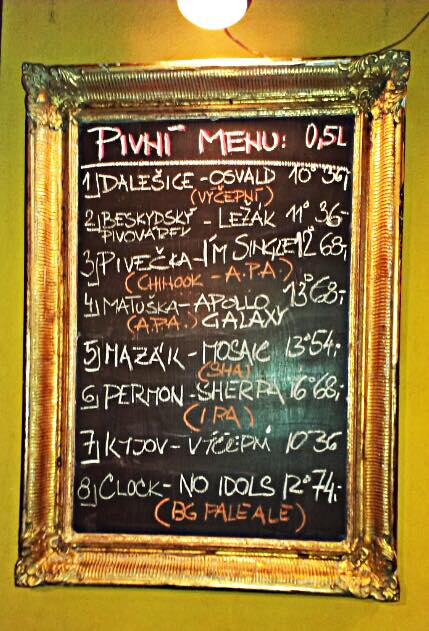 PIVNÍ MENU: 0,5L
1) DALEŠICE - OSVALD 10° 36,-
(VÝČEPNÍ)
2) BESKYDSKÝ PIVOVÁREK - LEŽÁK 11° 36-
3) PIVEČKA - I'M SINGLE 12° 68,-
(CHINOOK - A.P.A.)
4) MATUŠKA - APOLLO 13° 68,-
(A.P.A.) GALAXY
5) MAZÁK - MOSAIC 13° 54,-
(SHA)
6) PERMON - SHERPA 16° 68,-
(IPA)
7) KYJOV - VÝČEPNÍ 10° 36
8) CLOCK - NO IDOLS 12° 74,-
(BG PALE ALE)